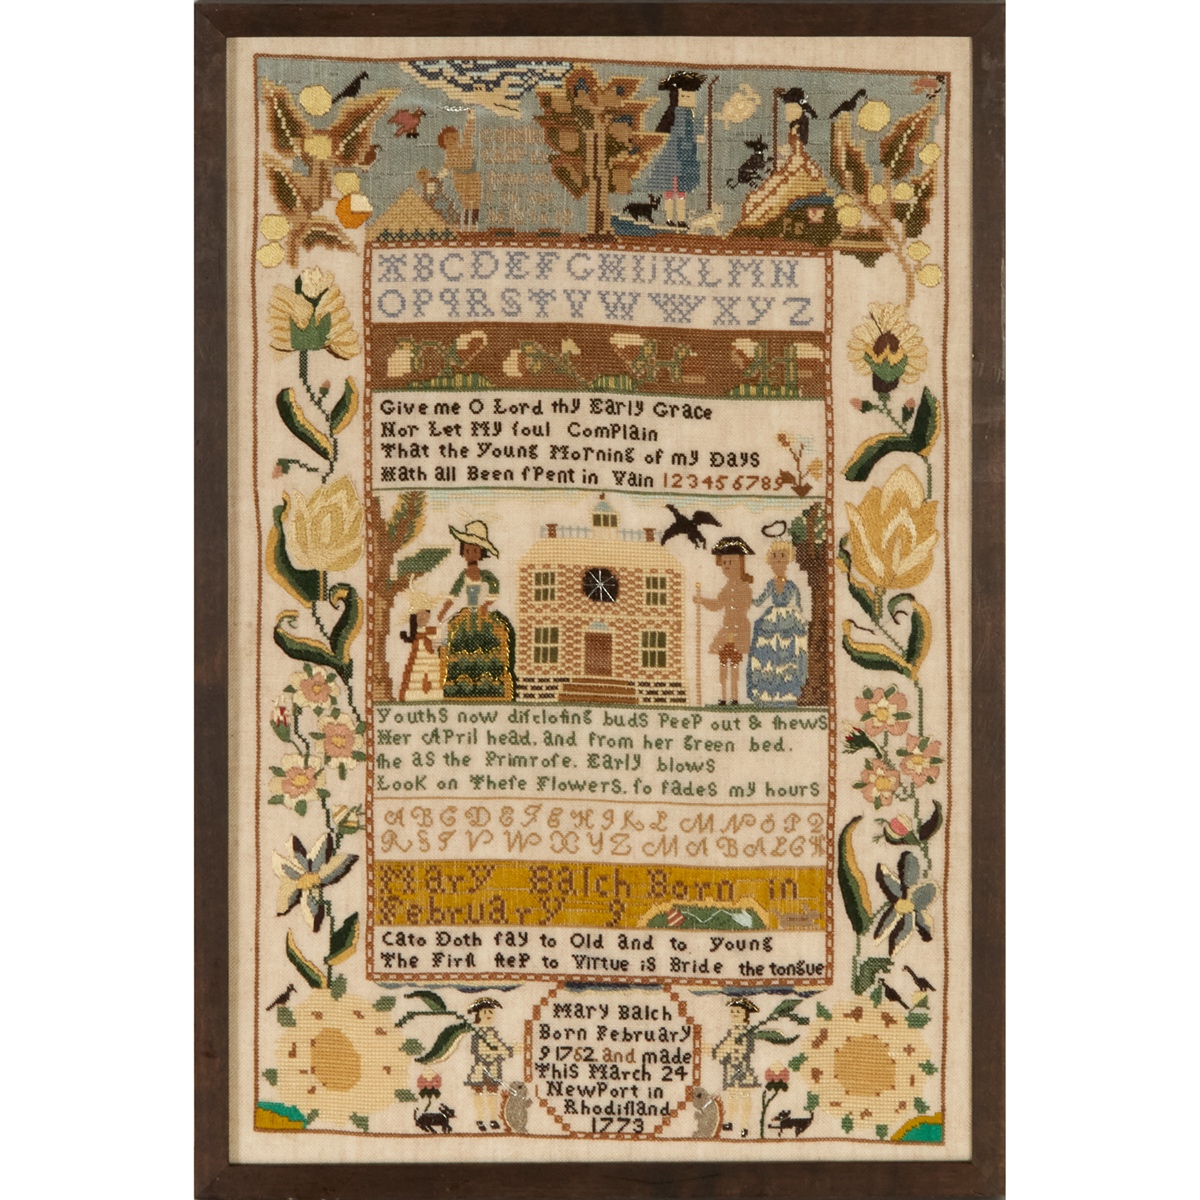 ABCDEFGHIJKLMN
OPQRSTVWWXYZ
Give me O Lord thy Early Grace
Nor Let My ſoul ComPlain
That the Young Morning of my Days
Hath all Been ſPent in Vain 123456789
Youths now diſcloſing buds PeeP out & ſhews
Her APril head, and from her green bed.
ſhe as the Primroſe. Early blows
Look on Theſe Flowers. ſo fades my hours
ABCDEFGHIKL MNOPQ
RSTVWXYZ MABALCH
Mary Balch Born in
February 9
Cato Doth ſay to Old and to Young
The Firſt ſteP to Virtue is Bride the tongue
Mary Balch
Born February
9 1762 and made
This March 24
NewPort in
Rhodiſland
1773